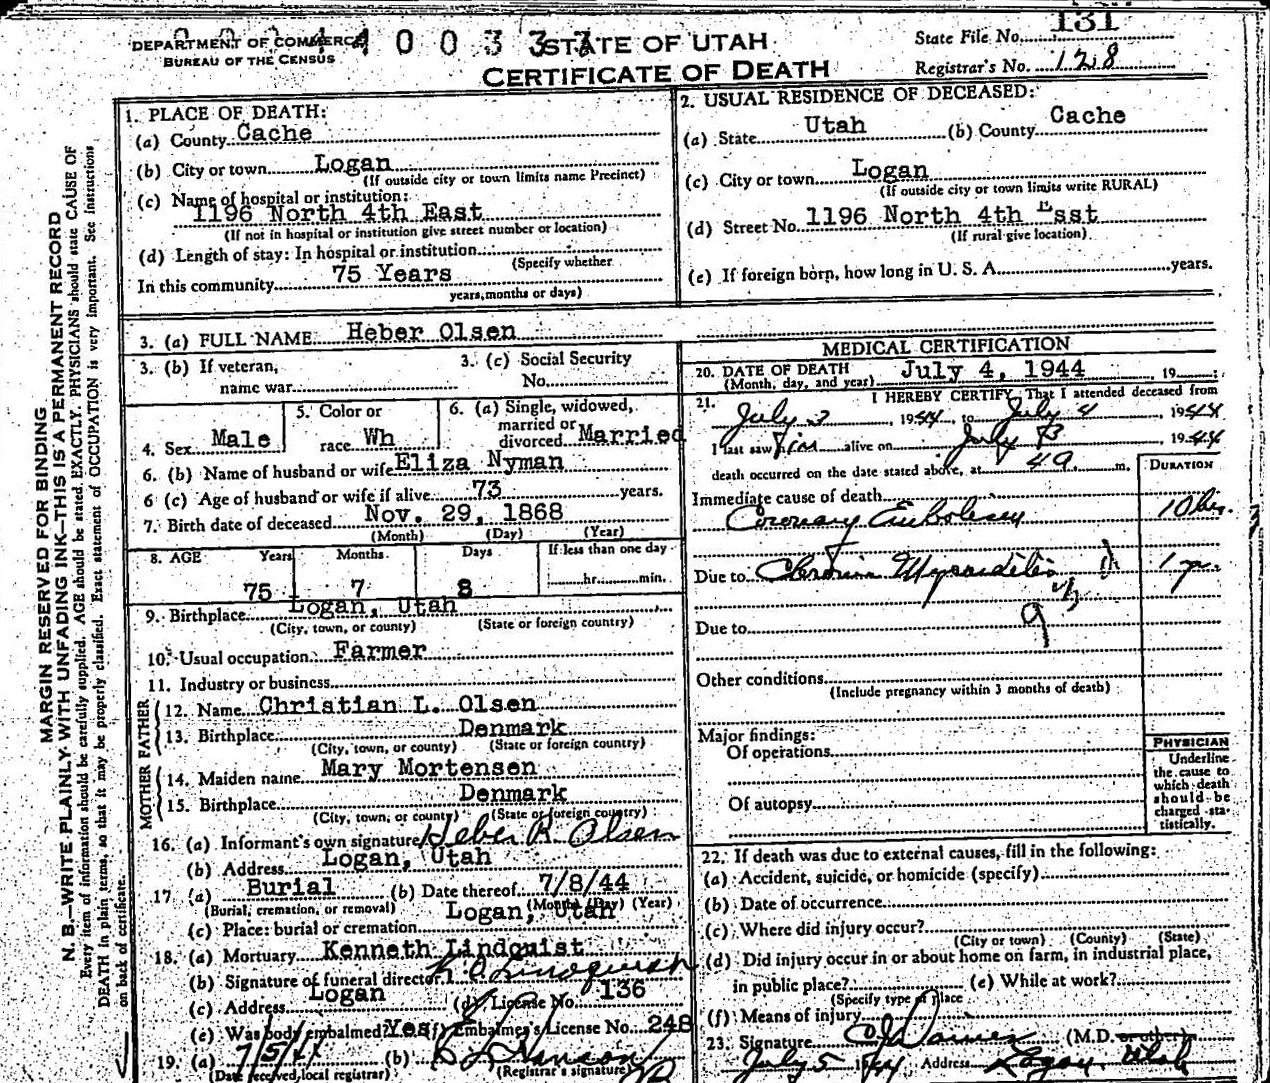 131
DEPARTMENT OF COMMERCE
BUREAU OF THE CENSUS
STATE OF UTAH
CERTIFICATE OF DEATH
State File No.
Registrar's No. 128
MARGIN RESERVED FOR BINDING
N. B.—WRITE PLAINLY WITH UNFADING INK—THIS IS A PERMANENT RECORD
Every item of information should be carefully supplied. AGE should be stated EXACTLY. PHYSICIANS should state CAUSE OF
DEATH in plain terms, so that it may be properly classified. Exact statement of OCCUPATION is very important. See instructions
on back of certificate.
1. PLACE OF DEATH:
(a) County Cache
(b) City or town Logan
(If outside city or town limits name Precinct)
(c) Name of hospital or institution:
1196 North 4th East
(If not in hospital or institution give street number or location)
(d) Length of stay: In hospital or institution
(Specify whether
In this community 75 Years
years, months or days)
2. USUAL RESIDENCE OF DECEASED:
(a) State Utah (b) County Cache
(c) City or town Logan
(If outside city or town limits write RURAL)
(d) Street No. 1196 North 4th Esst
(If rural give location)
(e) If foreign born, how long in U. S. A. years.
3. (a) FULL NAME Heber Olsen
3. (b) If veteran, name war
3. (c) Social Security No.
4. Sex Male
5. Color or race Wh
6. (a) Single, widowed, married or divorced Married
6. (b) Name of husband or wife Eliza Nyman
6 (c) Age of husband or wife if alive 73 years.
7. Birth date of deceased Nov. 29, 1868
(Month) (Day) (Year)
8. AGE Years Months Days If less than one day
75 7 8 hr. min.
9. Birthplace Logan, Utah
(City, town, or county) (State or foreign country)
10. Usual occupation Farmer
11. Industry or business
FATHER
12. Name Christian L. Olsen
13. Birthplace Denmark
(City, town, or county) (State or foreign country)
MOTHER
14. Maiden name Mary Mortensen
15. Birthplace Denmark
(City, town, or county) (State or foreign country)
16. (a) Informant's own signature Heber R. Olsen
(b) Address Logan, Utah
17 (a) Burial (b) Date thereof 7/8/44
(Burial, cremation, or removal) (Month) (Day) (Year)
(c) Place: burial or cremation Logan, Utah
18. (a) Mortuary Kenneth Lindquist
(b) Signature of funeral director Lindquist
(c) Address Logan (d) License No. 136
(e) Was body embalmed? Yes (f) Embalmer's License No. 248
19. (a) 7/5/44 (b) Hanson
(Date received, local registrar) (Registrar's signature)
MEDICAL CERTIFICATION
20. DATE OF DEATH July 4, 1944, 19
(Month, day, and year)
21. I HEREBY CERTIFY, That I attended deceased from
July 3, 1944, to July 4, 1944
I last saw him alive on July 3, 1944
death occurred on the date stated above, at m.
DURATION
Immediate cause of death
Coronary Embolism
Due to Chronic Myocarditis
Due to
Other conditions
(Include pregnancy within 3 months of death)
Major findings:
Of operations
Of autopsy
PHYSICIAN
Underline
the cause to
which death
should be
charged sta-
tistically.
22. If death was due to external causes, fill in the following:
(a) Accident, suicide, or homicide (specify)
(b) Date of occurrence
(c) Where did injury occur?
(City or town) (County) (State)
(d) Did injury occur in or about home on farm, in industrial place,
in public place? (e) While at work?
(Specify type of place
(f) Means of injury
23. Signature Daines (M.D. or other)
July 5 1944 Address Logan, Utah